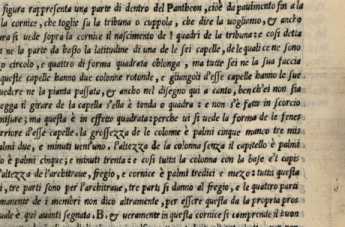 figura rappresenta una parte di dentro del Pantheon, cioè da pauimento fin a la
la cornice, che toglie su la tribuna o cuppola, che dire la uogliamo, & ancho
ra si uede sopra la cornice il nascimento de i quadri de la tribuna: e cosi detta
ne la parte da basso la latitudine di una de le sei capelle, de le quali ce ne sono
p circolo, e quattro di forma quadrata oblonga, ma tutte sei ne la sua faccia
queste capelle hanno due colonne rotonde, e gliangoli d'esse capelle hanno le sue
uedere ne la pianta passata, & ancho nel disegno qui a canto, benche'i non sia
egga il girare de la capella s'ella è tonda o quadra: e non s'è fatto in scorcio
misure; ma questa è in effetto quadrata: perche ui si uede la forma de le fenes
erriore d'esse capelle. la grossezza de le colonne è palmi cinque manco tre mi
almi due, e minuti uent'uno. l'altezza de la colonna senza il capitello è palmi
o è palmi cinque; e minuti trenta: e cosi tutta la colonna con la base e'l capi
l'altezza de l'architraue, fregio, e cornice è palmi tredici e mezo: tutta questa
i, tre parti sono per l'architraue, tre parti si danno al fregio, e le quatro parti
manente de i membri non dico altramente, per essere questa da la propria pros
uale è qui auanti segnata. B, & ueramente in questa cornice si comprende il buon